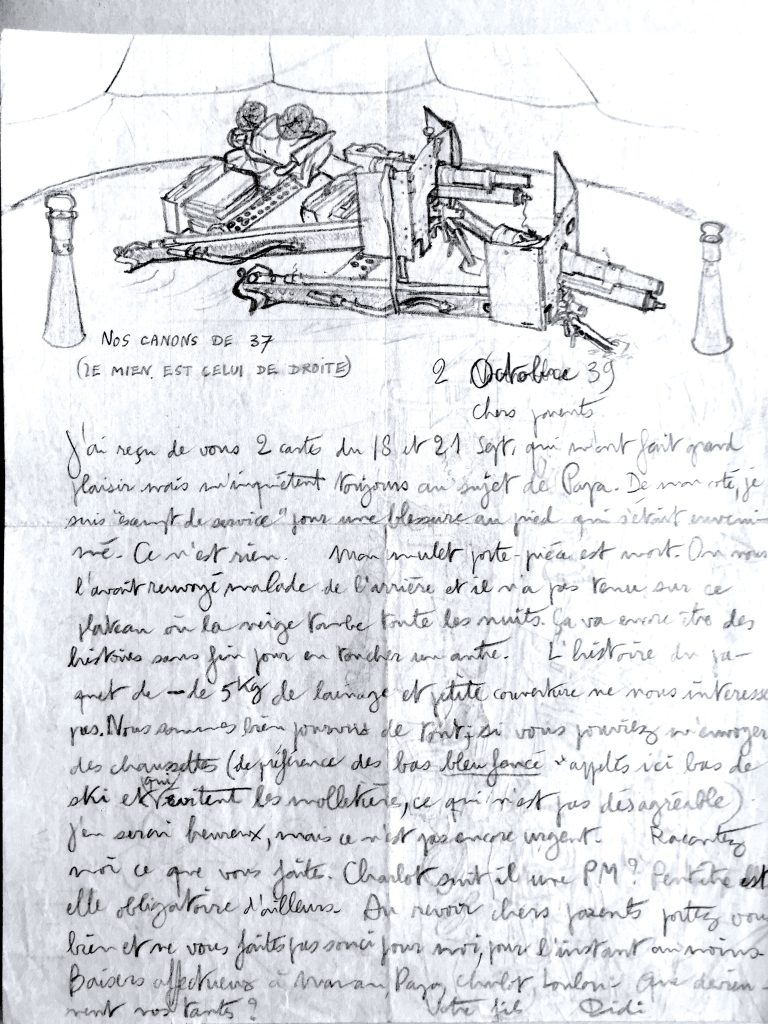 NOS CANONS DE 37
(LE MIEN EST CELUI DE DROITE)
2 Octobre 39
chers parents
J'ai reçu de vous 2 cartes du 18 et 21 Sept, qui m'ont fait grand
plaisir mais m'inquiètent toujours au sujet de Papa. De mon coté, je
suis "exempt de service" pour une blessure au pied qui s'était enveni-
mé. Ce n'est rien. Mon mulet porte-pièce est mort. On nous
l'avait renvoyé malade de l'arrière et il n'a pas tenu sur ce
plateau où la neige tombe toute les nuits. Ça va encore être des
histoires sans fin pour en toucher un autre. L'histoire du pa-
quet de - de 5kg de lainage et petite couverture ne nous interesse
pas. Nous sommes bien pourvus de tout; si vous pouviez m'envoyer
des chaussettes (de préférence des bas bleu foncé appelés ici bas de
ski et qui évitent les molletière, ce qui n'est pas désagréable)
j'en serai heureux, mais ce n'est pas encore urgent. Racontez
moi ce que vous faites. Charlot suit il une PM? Peut être est
elle obligatoire d'ailleurs. Au revoir chers parents portez vous
bien et ne vous faites pas souci pour moi, pour l'instant au moins.
Baisers affectueux à Maman, Papa, Charlot, Loulou. Que devien-
nent nos tantes? Votre fils Didi